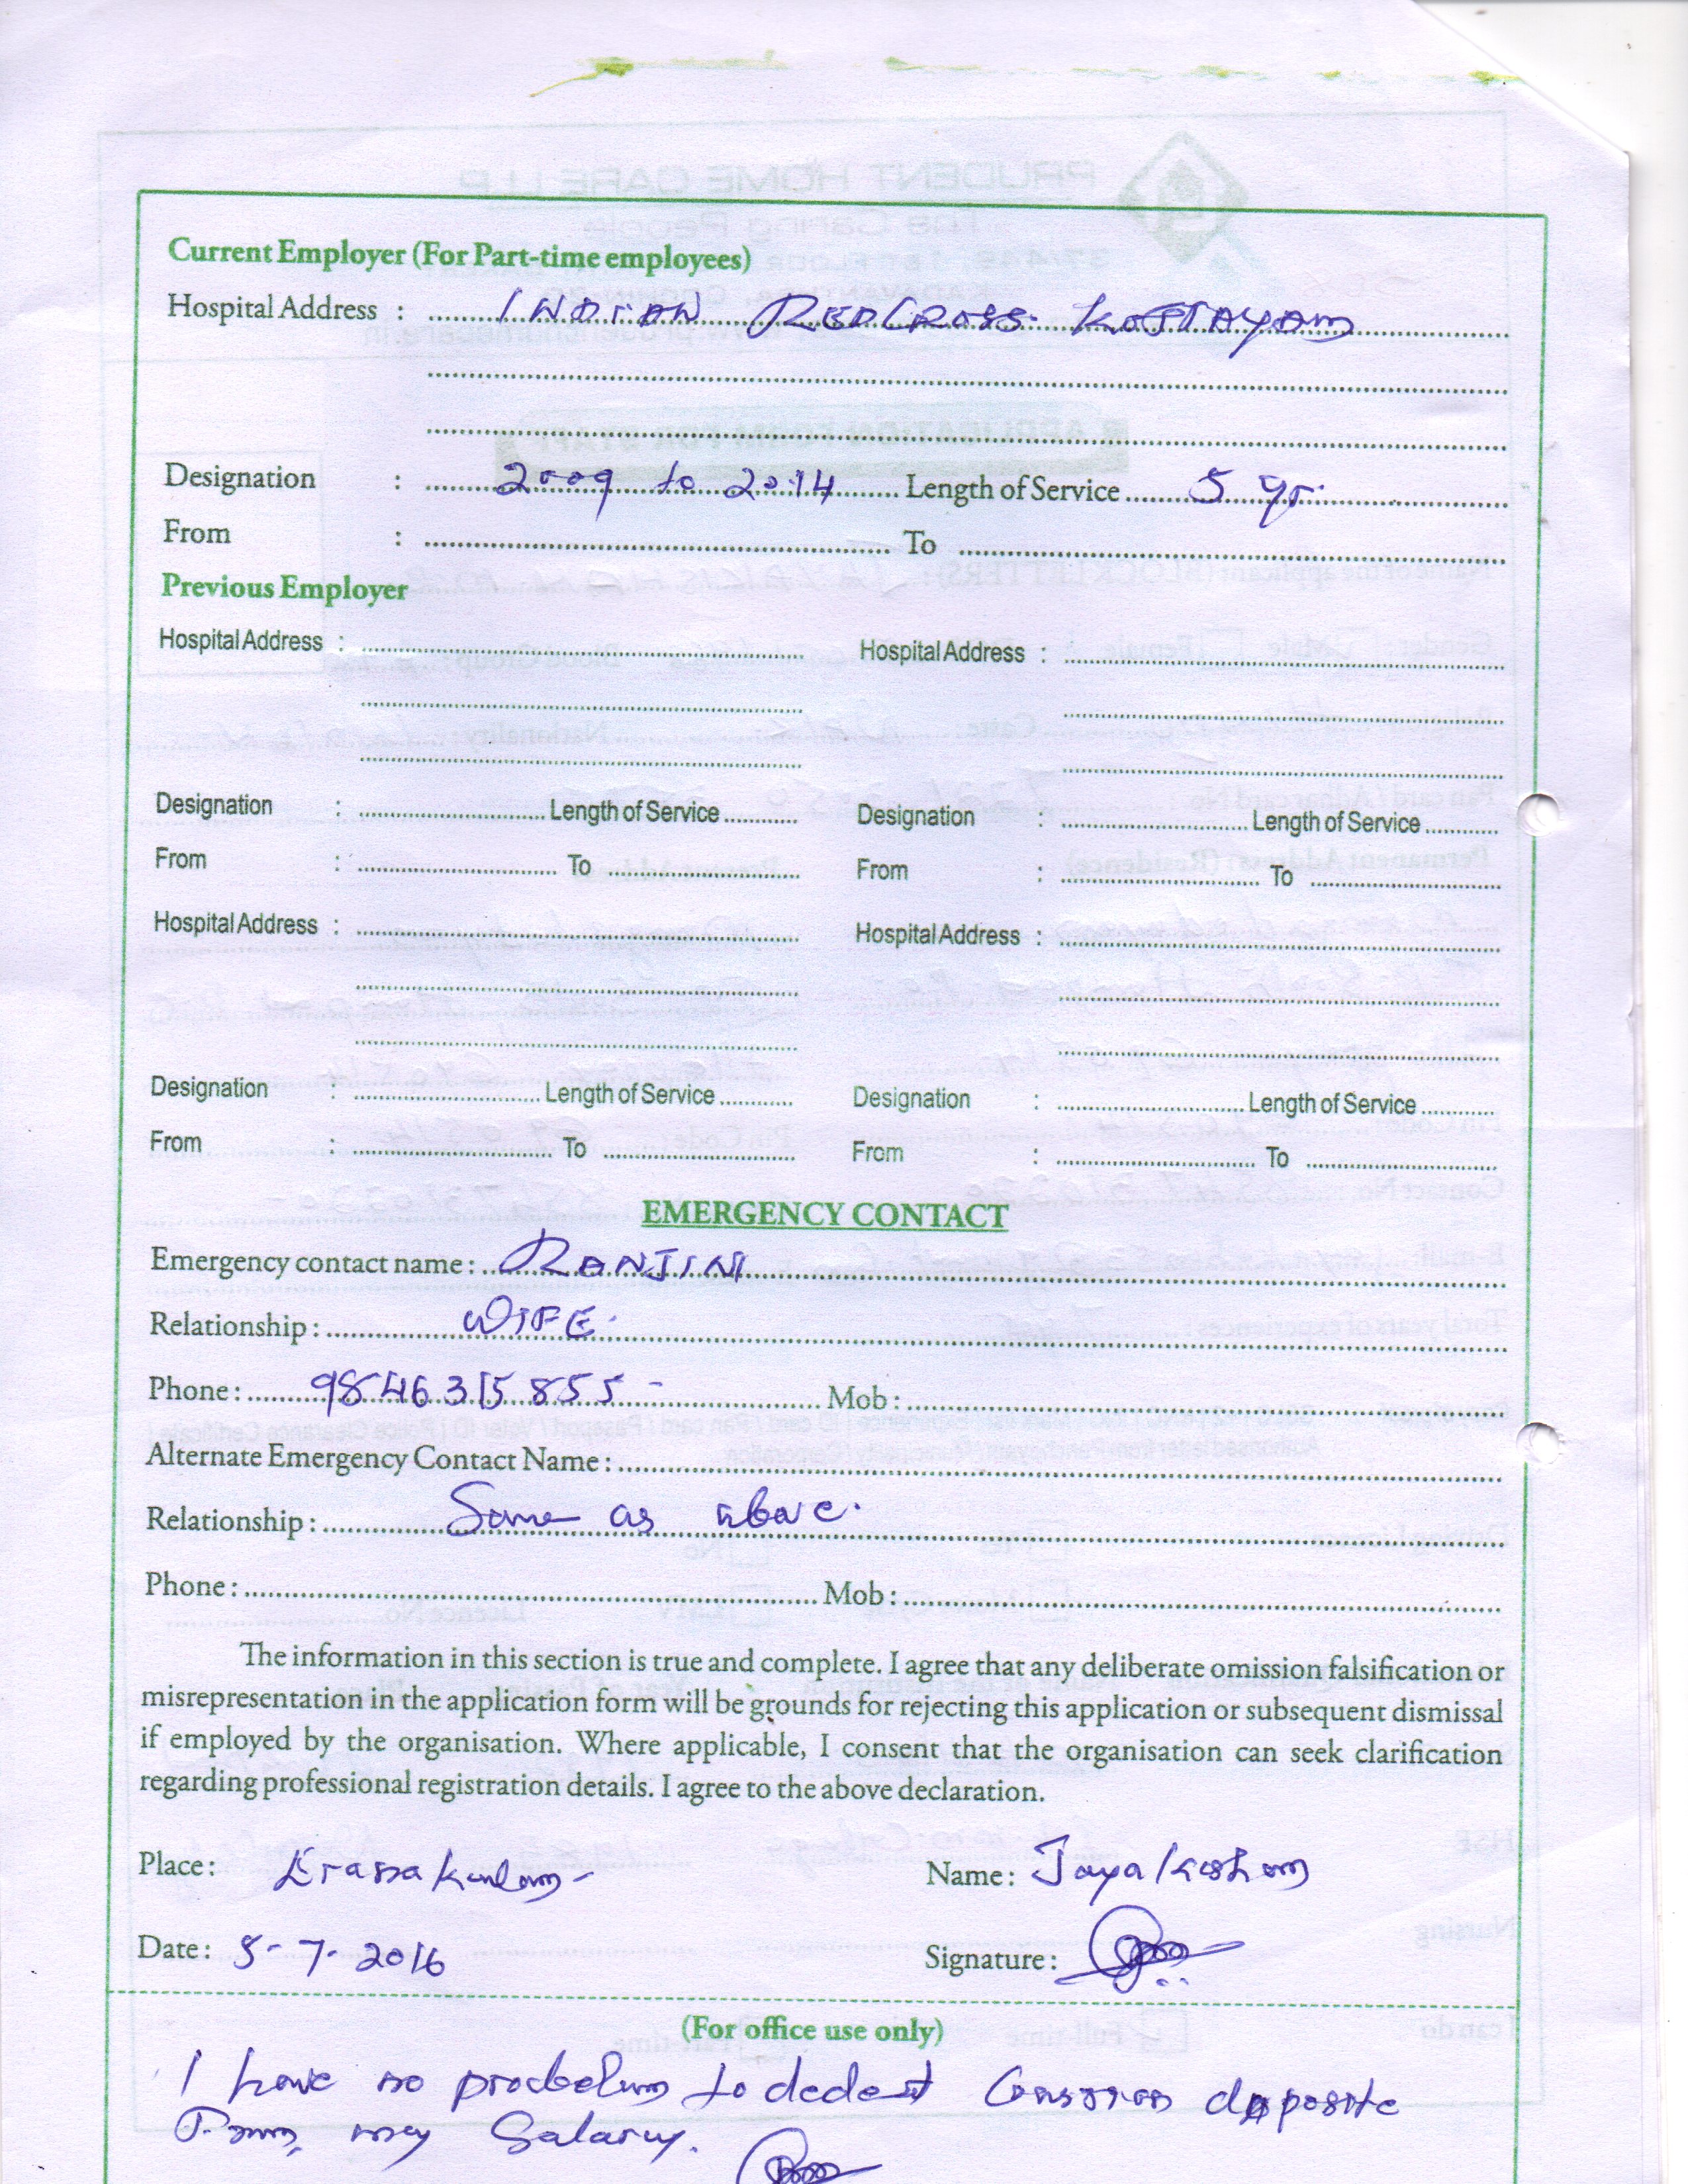 Current Employer (For Part-time employees)
Hospital Address : INDIAN REDCROSS KOTTAYAM
Designation : 2009 to 2014 Length of Service 5 yr.
From : To
Previous Employer
Hospital Address : Hospital Address :
Designation : Length of Service Designation : Length of Service
From : To From : To
Hospital Address : Hospital Address :
Designation : Length of Service Designation : Length of Service
From : To From : To
EMERGENCY CONTACT
Emergency contact name : RANJINI
Relationship : WIFE.
Phone : 9846315855 - Mob :
Alternate Emergency Contact Name :
Relationship : Same as above.
Phone : Mob :
The information in this section is true and complete. I agree that any deliberate omission falsification or
misrepresentation in the application form will be grounds for rejecting this application or subsequent dismissal
if employed by the organisation. Where applicable, I consent that the organisation can seek clarification
regarding professional registration details. I agree to the above declaration.
Place : Ernakulam - Name : Jayakishan
Date : 5-7-2016 Signature :
(For office use only)
I have no to deposite
From my Salary.